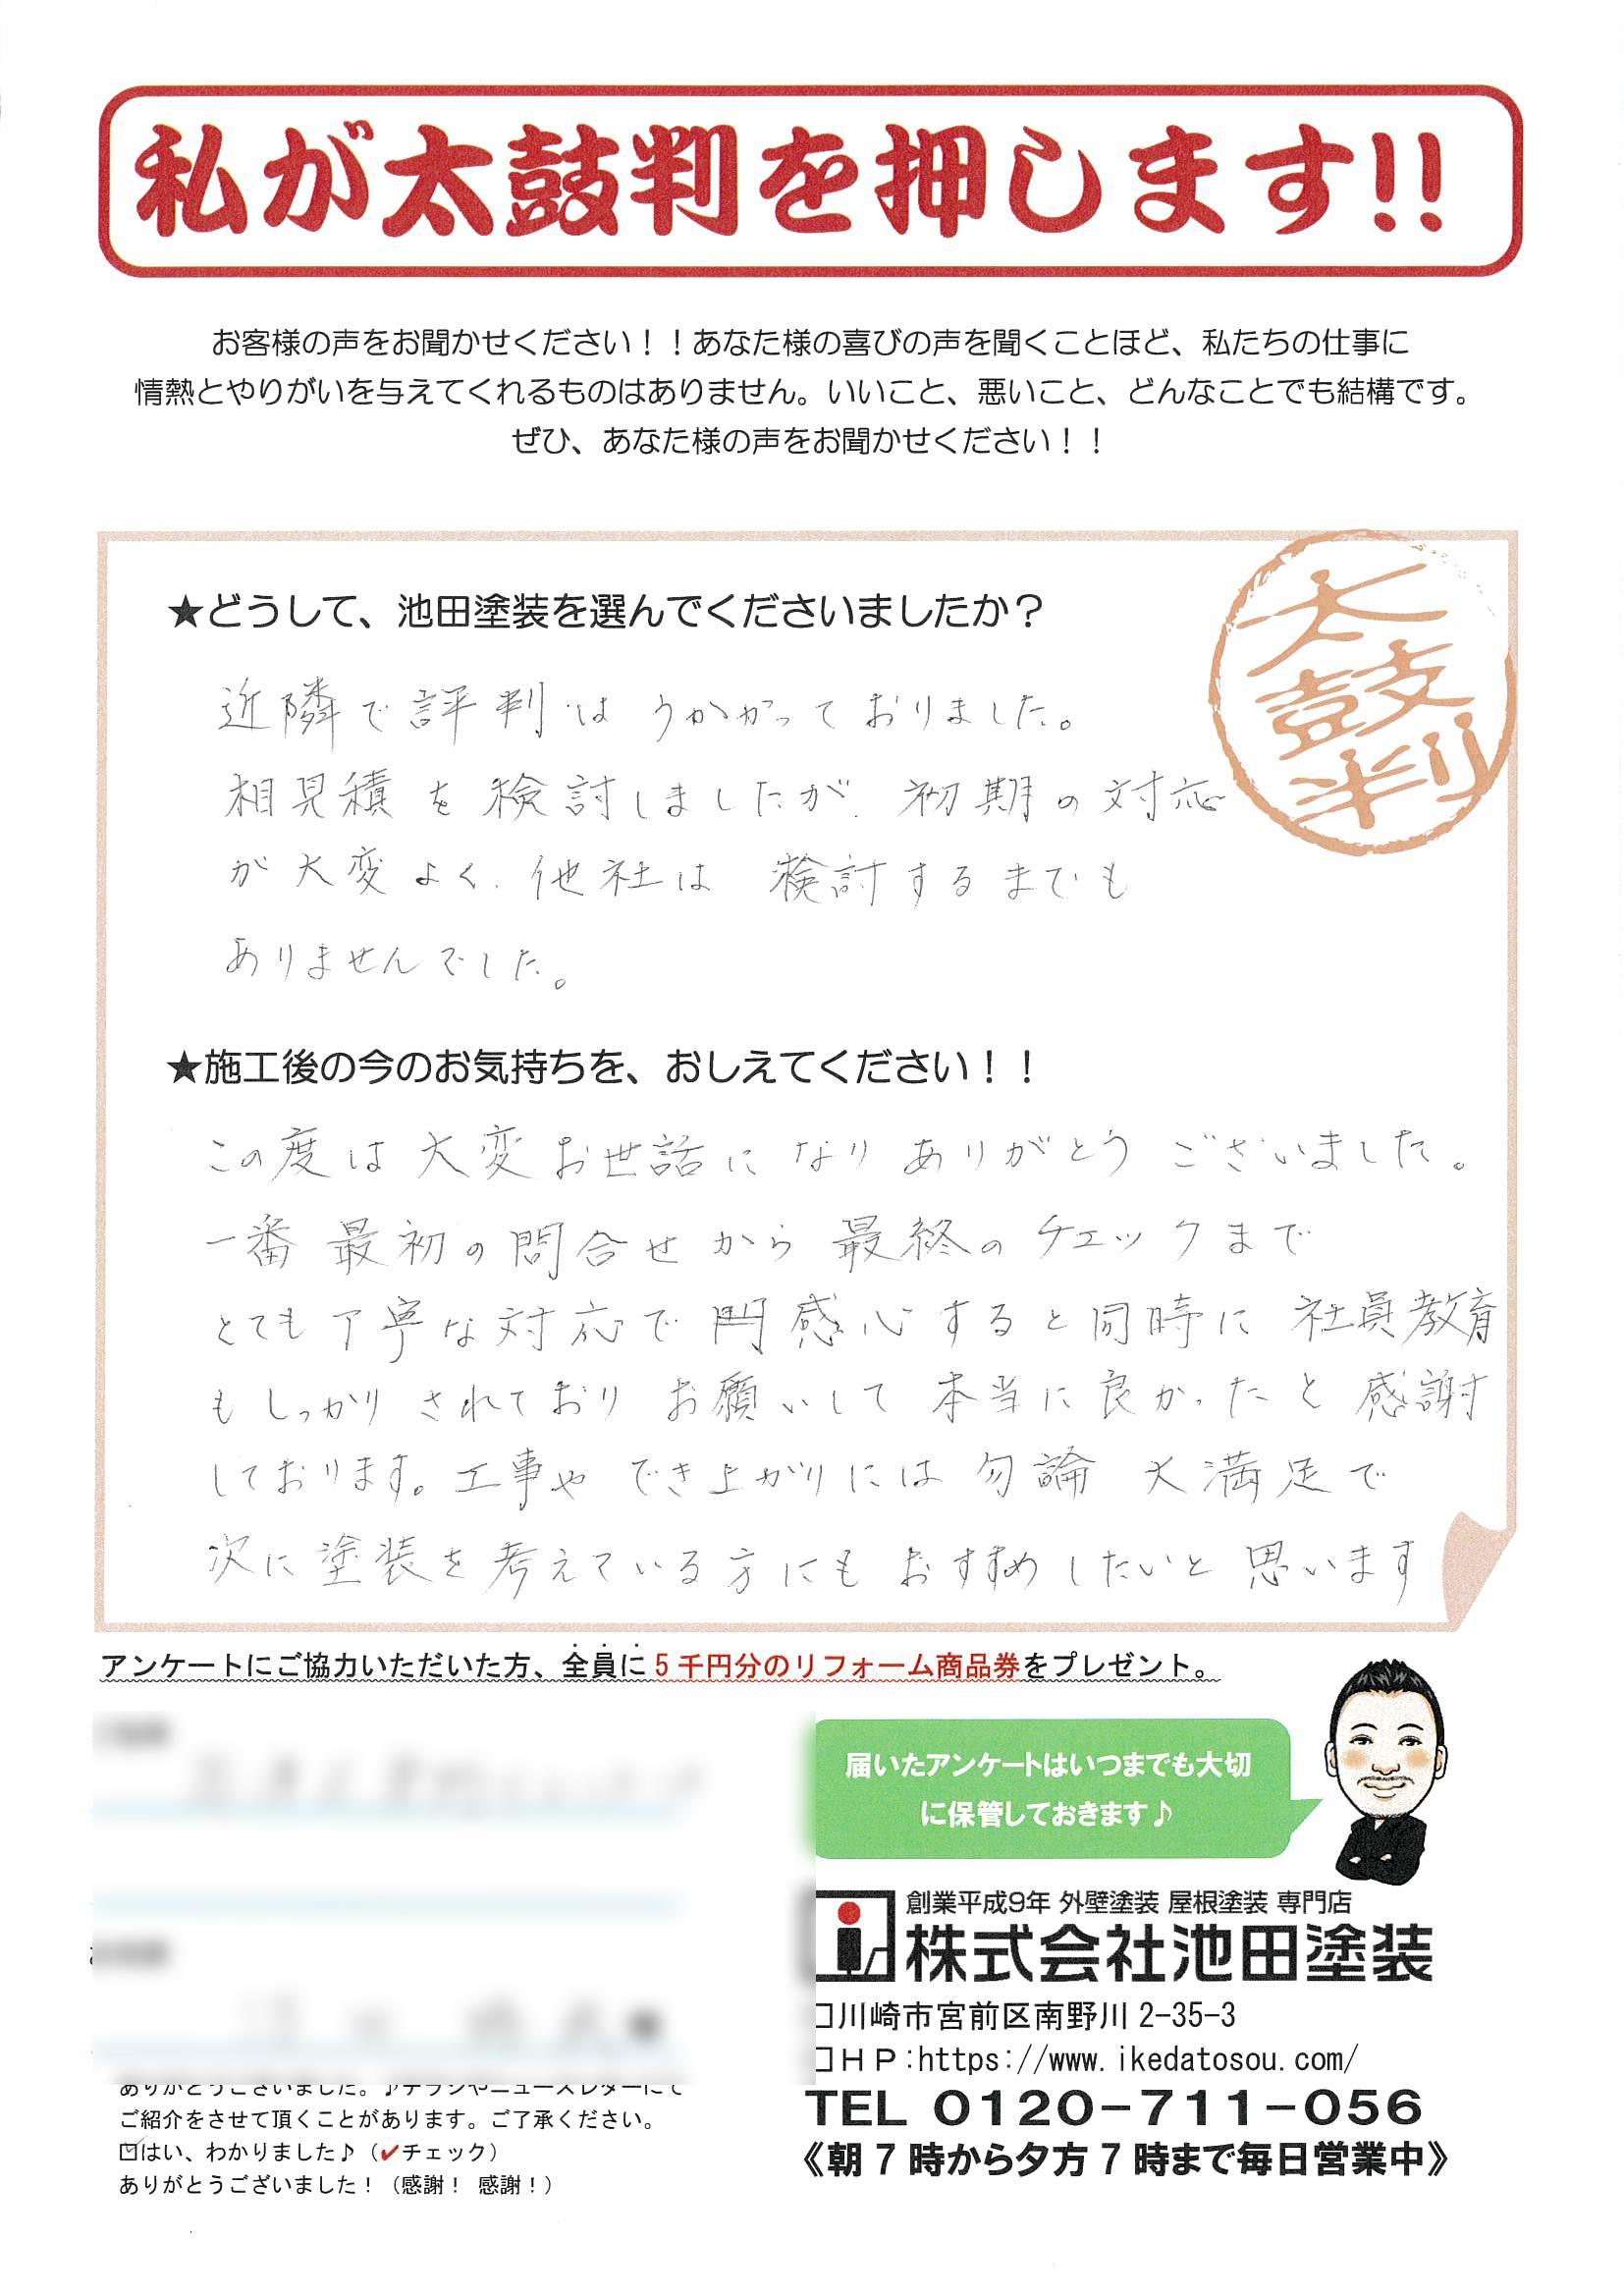 私が太鼓判を押します!!
お客様の声をお聞かせください！！あなた様の喜びの声を聞くことほど、私たちの仕事に
情熱とやりがいを与えてくれるものはありません。いいこと、悪いこと、どんなことでも結構です。
ぜひ、あなた様の声をお聞かせください！！
太鼓判
★どうして、池田塗装を選んでくださいましたか？
近隣で評判はうかがっておりました。
相見積を検討しましたが、初期の対応
が大変よく、他社は検討するまでも
ありませんでした。
★施工後の今のお気持ちを、おしえてください！！
この度は大変お世話になりありがとうございました。
一番最初の問合せから最終のチェックまで
とても丁寧な対応で感心すると同時に社員教育
もしっかりされておりお願いして本当に良かったと感謝
しております。工事やでき上がりには勿論大満足で
次に塗装を考えている方にもおすすめしたいと思います
アンケートにご協力いただいた方、全員に5千円分のリフォーム商品券をプレゼント。
届いたアンケートはいつまでも大切
に保管しておきます♪
創業平成9年 外壁塗装 屋根塗装 専門店
株式会社池田塗装
□川崎市宮前区南野川2-35-3
□HP:https://www.ikedatosou.com/
TEL 0120-711-056
《朝7時から夕方7時まで毎日営業中》
ありがとうございました。♪チラシやニュースレターにて
ご紹介をさせて頂くことがあります。ご了承ください。
☑はい、わかりました♪（✔チェック）
ありがとうございました！（感謝！ 感謝！）